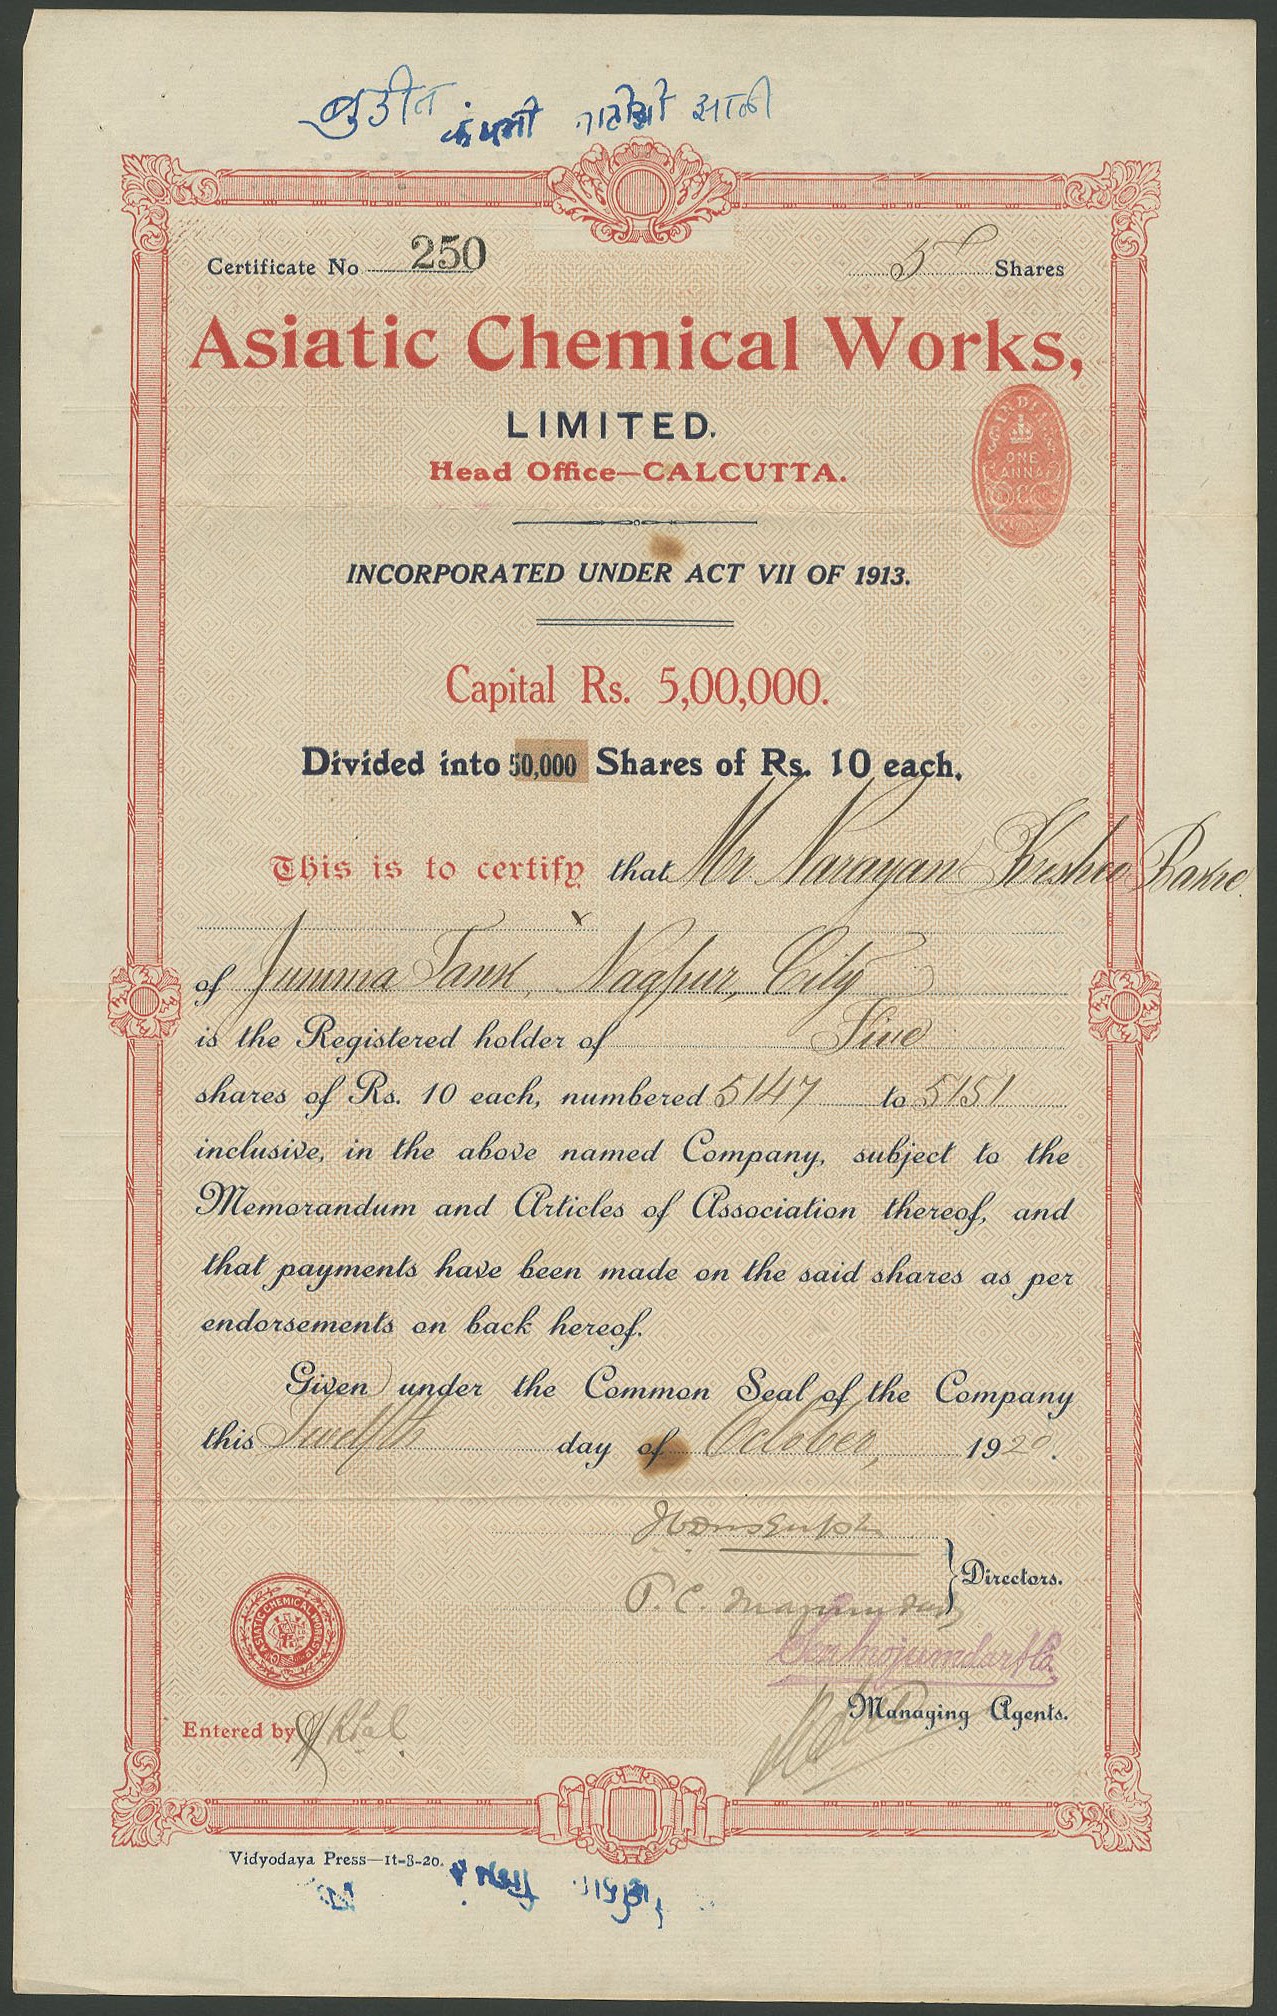 कंपनी
Certificate No 250
5 Shares
Asiatic Chemical Works,
LIMITED.
Head Office—CALCUTTA.
INDIA
ONE
ANNA
INCORPORATED UNDER ACT VII OF 1913.
Capital Rs. 5,00,000.
Divided into 50,000 Shares of Rs. 10 each.
This is to certify that Mr Narayan
of Jumma Tank, Nagpur, City
is the Registered holder of Five
shares of Rs. 10 each, numbered 5147 to 5151
inclusive, in the above named Company, subject to the
Memorandum and Articles of Association thereof, and
that payments have been made on the said shares as per
endorsements on back hereof.
Given under the Common Seal of the Company
this Twelfth day of October, 1920.
Directors.
P. C. Mazumdar
ASIATIC CHEMICAL WORKS LD
Sen Mojumdar & Co.
Managing Agents.
Entered by
Vidyodaya Press—11-8-20.